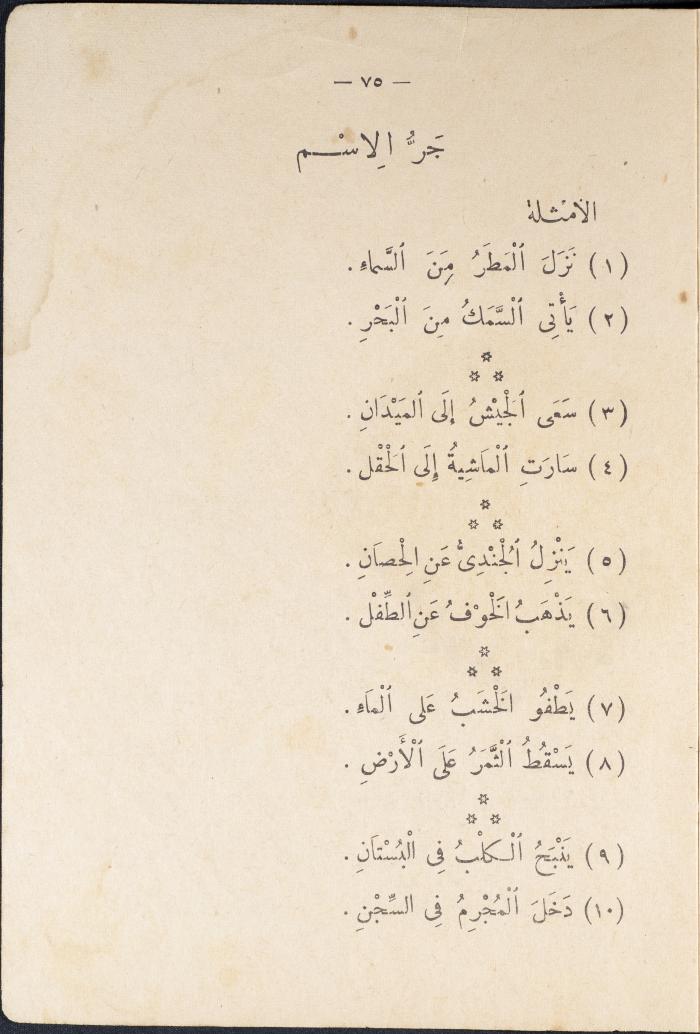 — ٧٥ —
جَرُّ الِاسْــم
الأمْثلة
(١) نَزَلَ ٱلْمَطَرُ مِنَ ٱلسَّماءِ .
(٢) يَأْتِى ٱلْسَّمَكُ مِنَ ٱلْبَحْرِ .
(٣) سَعَى ٱلْجَيْشُ إِلَى ٱلمَيْدَانِ .
(٤) سَارَتِ ٱلْمَاشِيةُ إِلَى ٱلحَقْل .
(٥) يَنْزِلُ ٱلْجُنْدِىُّ عَنِ الْحِصَانِ .
(٦) يَذْهَبُ الَخْوْفُ عَنِ ٱلطِّفْل .
(٧) يَطْفُو الَخْشَبُ عَلى ٱلْمَاءِ .
(٨) يَسْقُطُ ٱلْثَّمَرُ عَلَى ٱلْأَرْضِ .
(٩) يَنْبَحُ ٱلْـكلْبُ فِى الْبُسْتَانِ .
(١٠) دَخَلَ ٱلْمُجْرِمُ فِى السِّجْنِ .